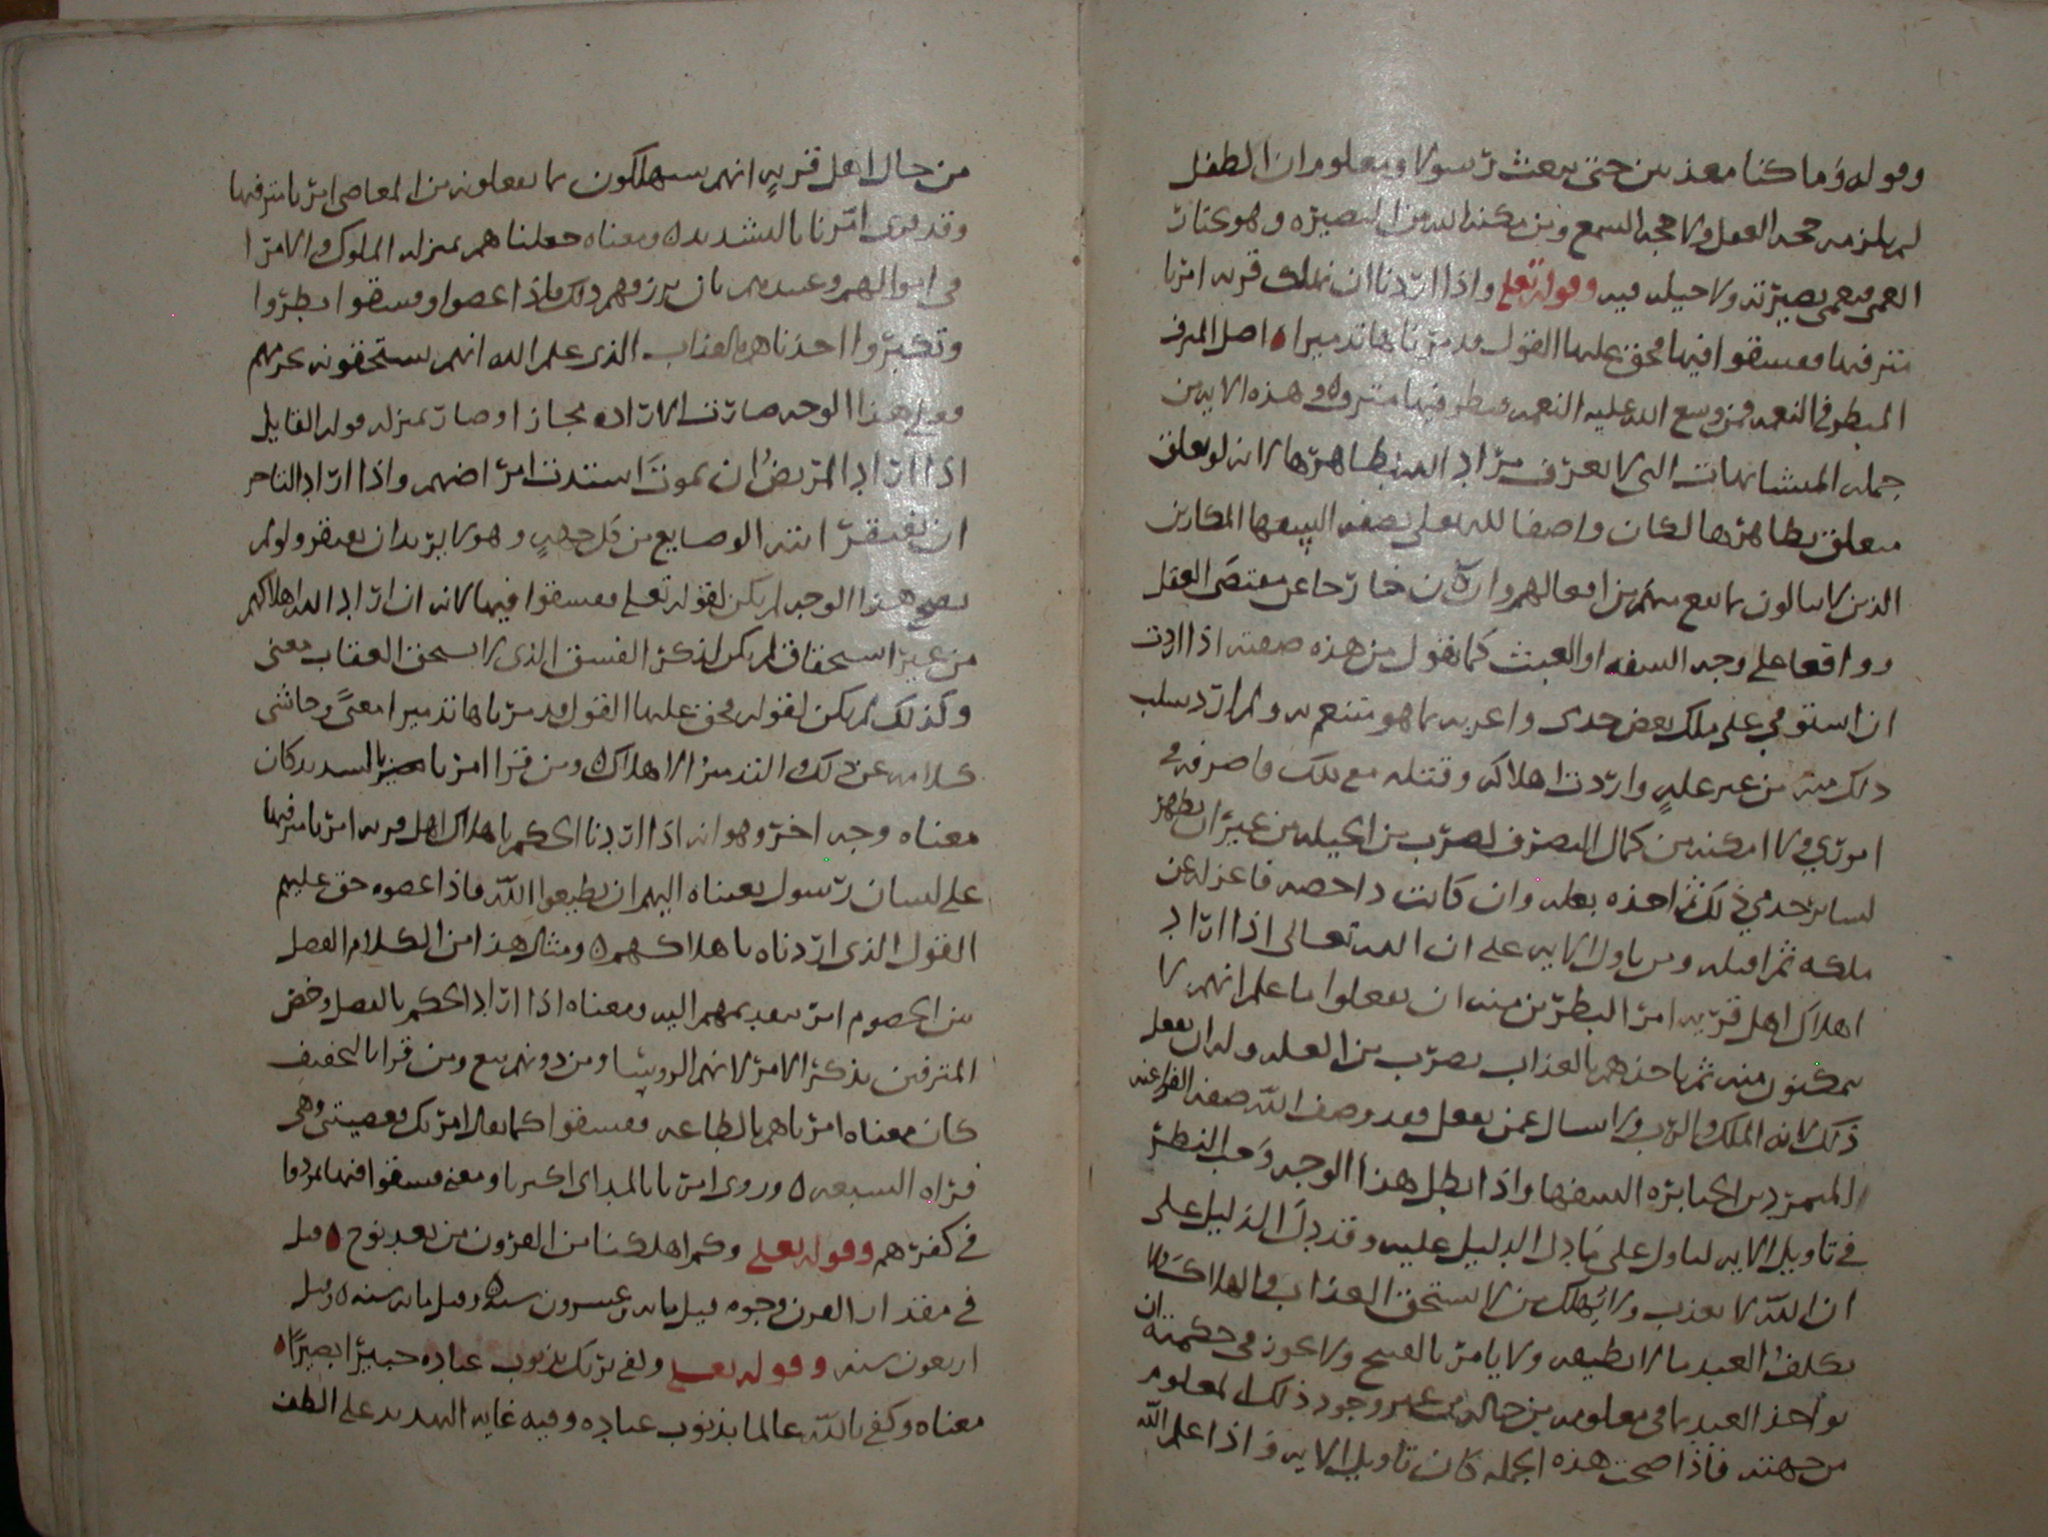 وقوله وما كنا معذبين حتى نبعث رسولا ومعلوم ان الطفل
لم يلزمه حجه العقل ولا حجه السمع ومن مكنه الله من البصيره وهو يختار
العمى فيعمى بصيرته ولا حيله فيه وقوله تعلى واذا اردنا ان نهلك قريه امرنا
مترفيها ففسقوا فيها فحق عليها القول فدمرناها تدميرا ه اصل المترف
المبطر في النعمه فمن وسع الله عليه النعمه فبطر فيها مترف وهذه الايه من
جمله المتشابهات التي لا يعرف مراد الله بظاهرها لانه لو تعلق
متعلق بظاهرها لكان واصفا لله تعلى بصفه
الذين لا يبالون بما يقع منهم من افعالهم وان كان خارجا عن مقتضى العقل
وواقعا على وجه السفه او العبث كما نقول من هذه صفته اذا اردت
ان استوفي على ملك بعض جندي واعريه مما هو متنعم به ولم ارد سلب
ذلك منه من غير عله واردت اهلاكه وقتله مع ملك ما صرفه في
اموري ولا امكنه من كمال التصرف لضرب من الحيله من غير ان يظهر
لساير جندي ذلك ثم اخذه بعله وان كانت داحضه فاعزله عن
ملكه ثم اقتله ومن تاول الايه على ان الله تعالى اذا اراد
اهلاك اهل قريه امر البطرين منه ان يفعلوا ما علم انهم لا
يمكنون منه ثم ياخذهم بالعذاب بضرب من العله وله ان يفعل
ذلك لانه الملك والرب ولا يسال عمن يفعل فقد وصف الله صفه الفراعنه
المتمردين الجبابره السفها واذا بطل هذا الوجه وجب النظر
في تاويل الايه ليتاول على ما دل الدليل عليه وقد دل الدليل على
ان الله لا يعذب ولا يهلك من لا يستحق العذاب والهلاك ولا
يكلف العبد ما لا يطيقه ولا يامر بالقبيح ولا يجوز في حكمته ان
يواخذ العبد بما في معلومه من حاله من غير وجود ذلك المعلوم
من جهته فاذا صحت هذه الجمله كان تاويل الايه واذا علم الله
من حال اهل قريه انهم سيهلكون بما يفعلونه من المعاصي امرنا مترفيها
وقد قرى امرنا بالتشديد ومعناه جعلناهم بمنزله الملوك والامرا
في اموالهم وعبيدهم بان نرزقهم ذلك فاذا عصوا وفسقوا بطروا
وتكبروا اخذناهم بالعذاب الذي علم الله انهم يستحقونه بجرمهم
فعلى هذا الوجه صارت الاراده مجازا وصار بمنزله قول القايل
اذا اراد المريض ان يموت اشتدت امراضه واذا اراد التاجر
ان يفتقر اتته الوضايع من كل جهه وهو لا يريد ان يفتقر ولو لم
يصح هذا الوجه لم يكن لقوله تعلى ففسقوا فيها لانه ان اراد الله اهلاكهم
من غير استحقاق لم يكن لذكر الفسق الذي لا يستحق العقاب معنى
وكذلك لم يكن لقوله فحق عليها القول فدمرناها تدميرا معنى وحاشى
كلامه عن ذلك والتدمير الاهلاك ومن قرا امرنا بالتشديد كان
معناه وجه اخر وهو انه اذا اردنا الحكم باهلاك اهل قريه امرنا مترفيها
على لسان رسول بعثناه اليهم ان يطيعوا الله فاذا عصوه حق عليهم
القول الذي اردناه باهلاكهم ه ومثال هذا من الكلام الفصل
بين الخصوم امر بتقديمهم اليه ومعناه اذا اراد الحكم بالفصل وخص
المترفين بذكر الامر لانهم الروسا ومن دونهم تبع ومن قرا بالتخفيف
كان معناه امرناهم بالطاعه ففسقوا كما يقال امرتك فعصيتني وهي
قراه السبعه ه وروي امرنا بالمد اي اكثرنا ومعنى ففسقوا فيها تمردوا
في كفرهم وقوله تعلى وكم اهلكنا من القرون من بعد نوح ه قيل
في مقدار القرن وجوه قيل مايه وعشرون سنه ه وقيل مايه سنه ه وقيل
اربعون سنه وقوله تعلى وكفى بربك بذنوب عباده خبيرا بصيرا ه
معناه وكفى بالله عالما بذنوب عباده وفيه غايه التهديد على